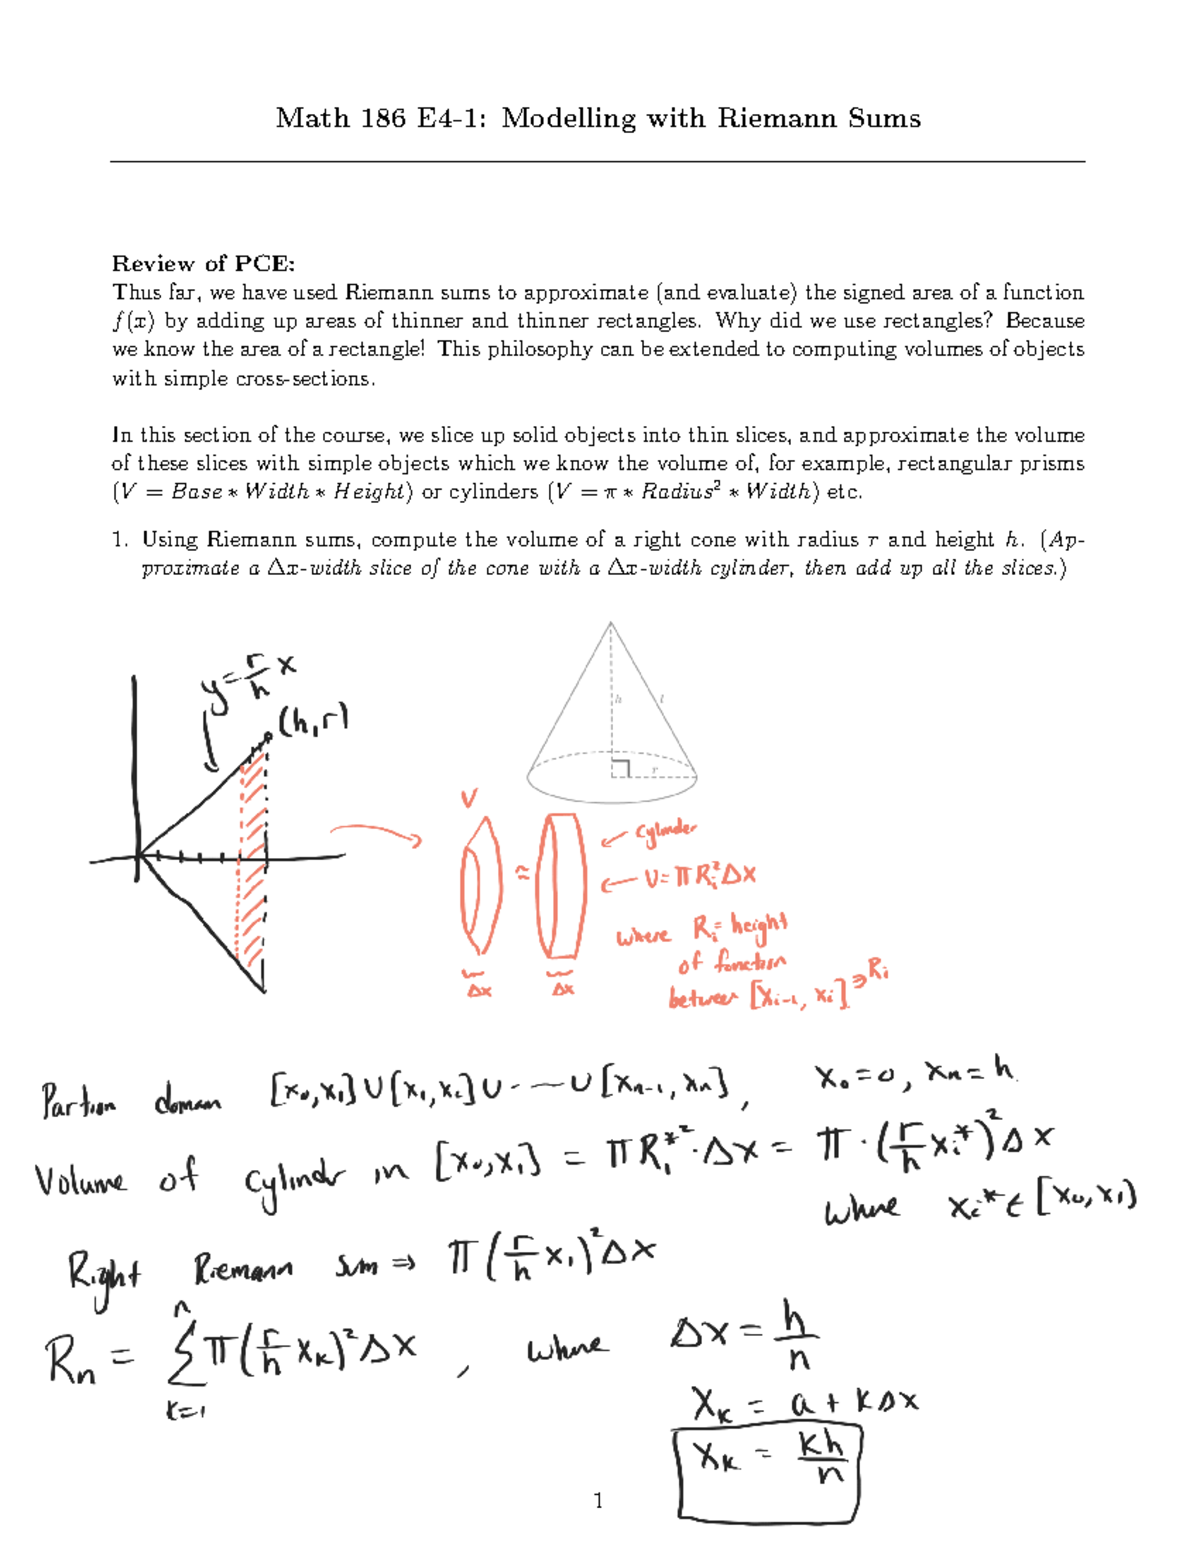 Math 186 E4-1: Modelling with Riemann Sums
Review of PCE:
Thus far, we have used Riemann sums to approximate (and evaluate) the signed area of a function
f(x) by adding up areas of thinner and thinner rectangles. Why did we use rectangles? Because
we know the area of a rectangle! This philosophy can be extended to computing volumes of objects
with simple cross-sections.
In this section of the course, we slice up solid objects into thin slices, and approximate the volume
of these slices with simple objects which we know the volume of, for example, rectangular prisms
(V = Base * Width * Height) or cylinders (V = π * Radius² * Width) etc.
1. Using Riemann sums, compute the volume of a right cone with radius r and height h. (Ap-
proximate a Δx-width slice of the cone with a Δx-width cylinder, then add up all the slices.)
y = r/h x
(h, r)
h
l
r
V
≈
← Cylinder
← V = π R_i² Δx
where R_i = height
of function
between [x_{i-1}, x_i] ∋ R_i
Δx
Δx
Partion domain [x₀,x₁] ∪ [x₁,x₂] ∪ ··· ∪ [x_{n-1}, x_n], x₀=0, x_n=h
Volume of Cylindr in [x₀,x₁] = π R₁*² · Δx = π · (r/h x_i*)² Δx
where x_i* ∈ [x₀,x₁)
Right Riemann sum ⇒ π (r/h x₁)² Δx
R_n = Σ_{k=1}^{n} π (r/h x_k)² Δx , where Δx = h/n
x_k = a + kΔx
x_k = kh/n
1